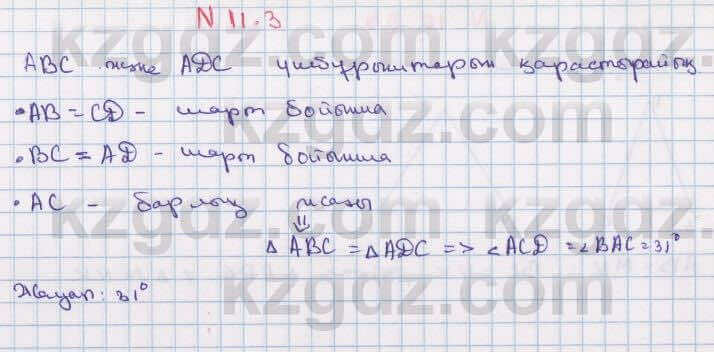 N 11.3
ABC және ADC үшбұрыштарын қарастырайық
• AB = CD - шарт бойынша
• BC = AD - шарт бойынша
• AC - барлық жағы
⇓
△ ABC = △ ADC => ∠ACD = ∠BAC = 31°
Жауап: 31°
kzgdz.com
kzgdz.com
kzgdz.com
kzgdz.com